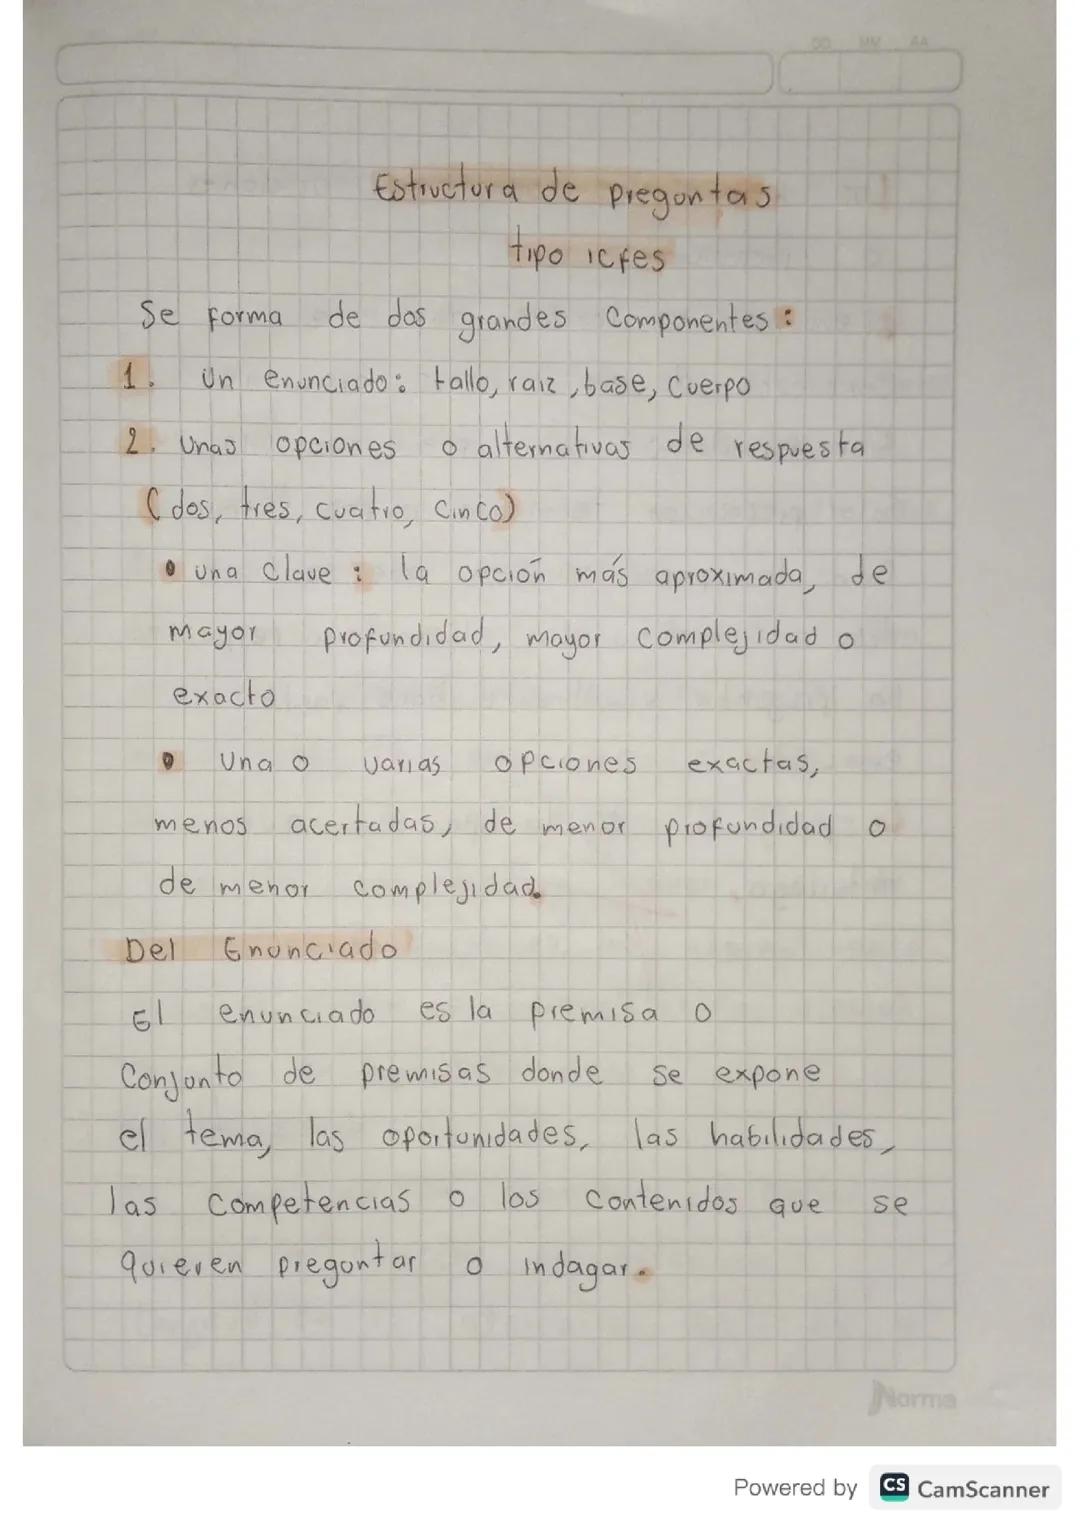 DD MM AA
Estructura de preguntas
tipo icfes
Se forma de dos grandes componentes:
1. Un enunciado: tallo, raiz, base, cuerpo
2. Unas opciones o alternativas de respuesta
(dos, tres, cuatro, cinco)
• una clave: la opción más aproximada, de
mayor profundidad, mayor complejidad o
exacto
• Una o varias opciones exactas,
menos acertadas, de menor profundidad o
de menor complejidad.
Del Enunciado
El enunciado es la premisa o
Conjunto de premisas donde se expone
el tema, las oportunidades, las habilidades,
las competencias o los contenidos que se
quieren preguntar o indagar.
Norma
Powered by CS CamScanner